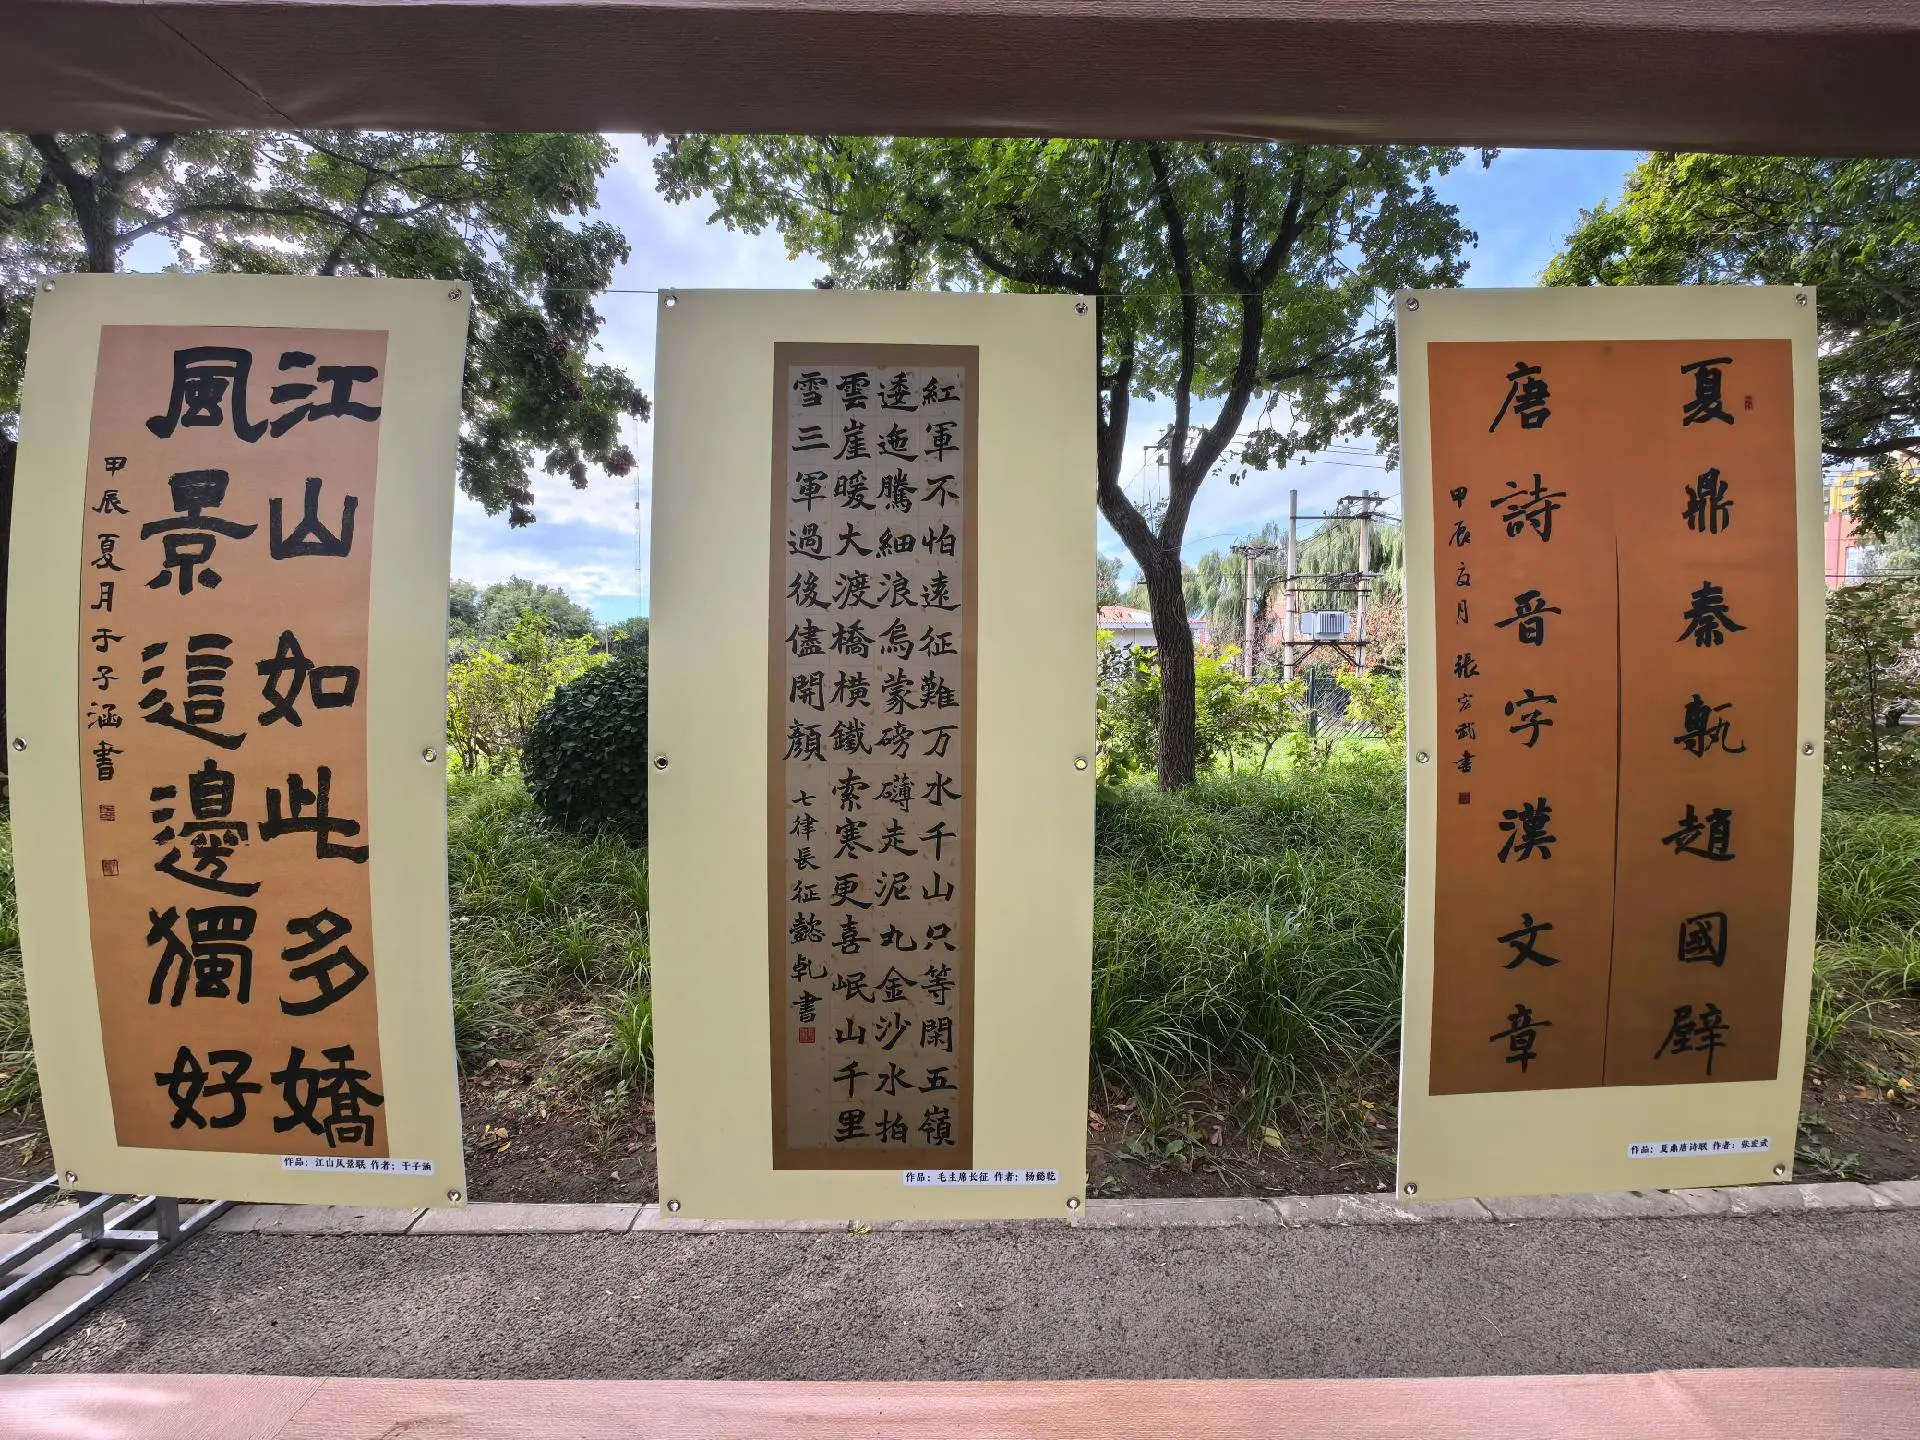 江山如此多娇
風景這邊獨好
甲辰夏月于子涵書
作品：江山风景联 作者：于子涵
紅軍不怕遠征難万水千山只等閑五嶺
逶迤騰細浪烏蒙磅礴走泥丸金沙水拍
雲崖暖大渡橋横鐵索寒更喜岷山千里
雪三軍過後儘開顏
七律長征懿乹書
作品：毛主席长征 作者：杨懿乾
夏鼎秦甎趙國壁
唐詩晉字漢文章
甲辰夏月張宏武書
作品：夏鼎唐诗联 作者：张宏武